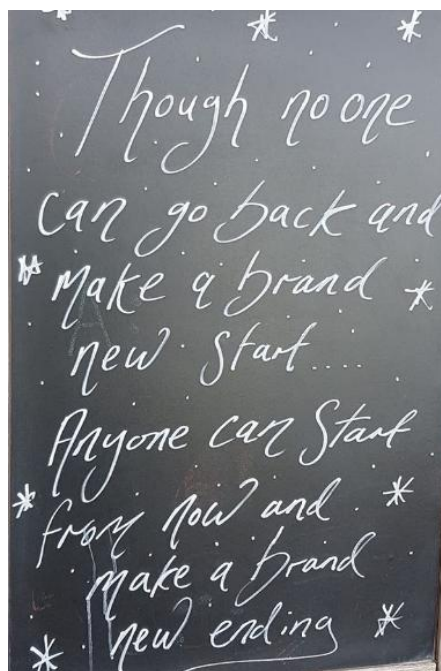 Though no one
can go back and
make a brand
new start....
Anyone can Start
from now and
make a brand
new ending